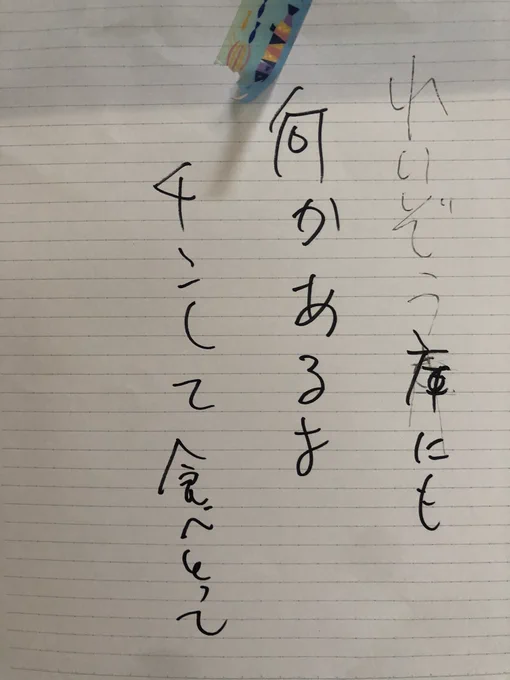 れいぞう庫にも
何かあるよ
チンして